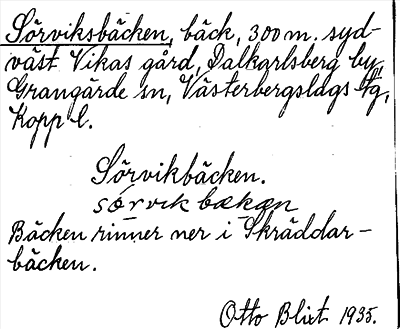 Sörviksbäcken, bäck, 300 m. syd-
väst Vikas gård, Dalkarlsberg by,
Grangärde sn, Västerbergslags tg,
Kopp l.
Sörvikbäcken.
sörvik bækan
Bäcken rinner ner i Skräddar-
bäcken.
Otto Blixt 1935.